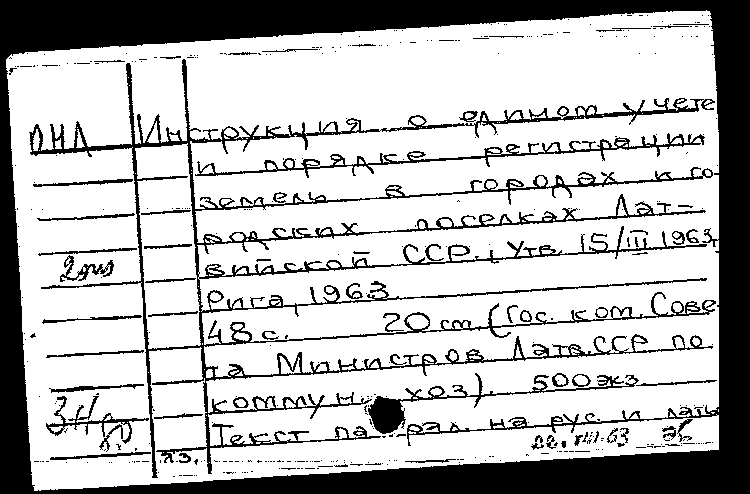 ОНЛ Инструкция о едином учете
и порядке регистрации
земель в городах и го-
родских поселках Лат-
2 экз
вийской ССР. Утв. 15/III 1963,
Рига, 1963.
48 с. 20 см. (Гос. ком. Сове-
та Министров Латв. ССР по
коммун. хоз). 500 экз.
Текст парал. на рус. и латы
яз.